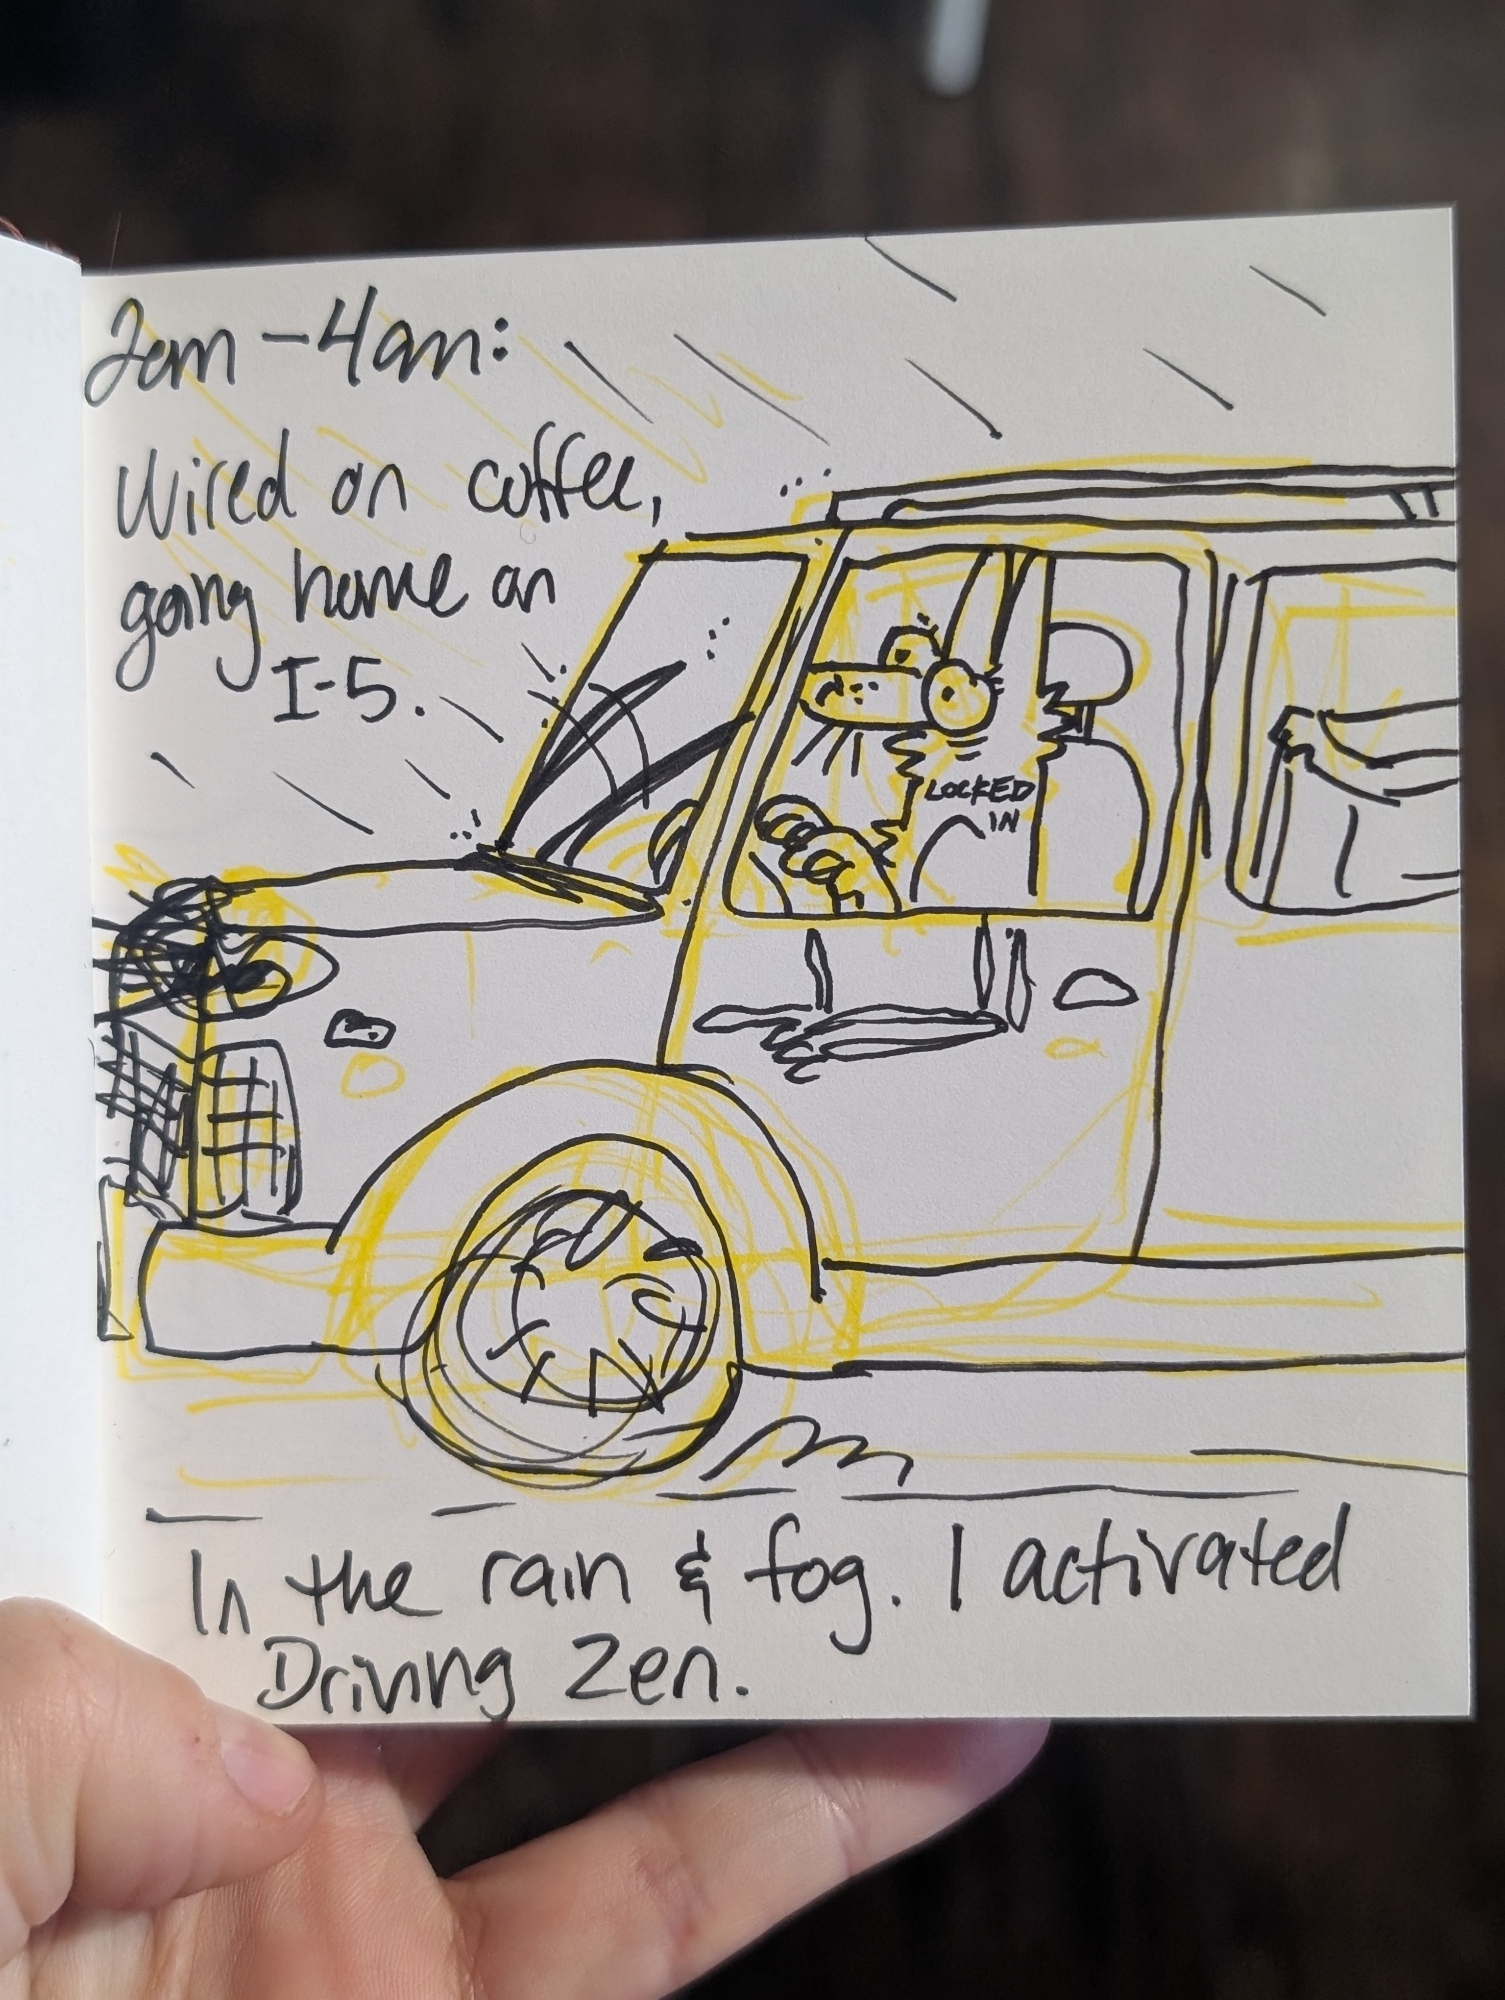 2am - 4am:
Wired on coffee,
going home on
I-5.
LOCKED
IN
In the rain & fog. I activated
Driving Zen.